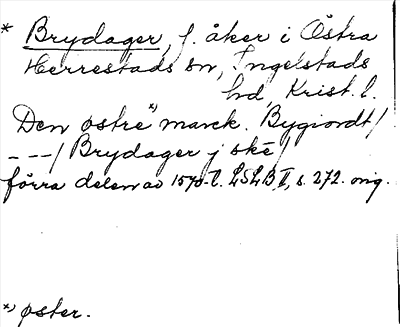 * Brydager, f. åker i Östra
Herrestads sn, Ingelstads
hd, Krist. l.
Den østre *) marck. Bygiordt/
---/ Brydager j ske/
förra delen av 1570-t. LSLB, II, s. 272. orig.
*) øster.